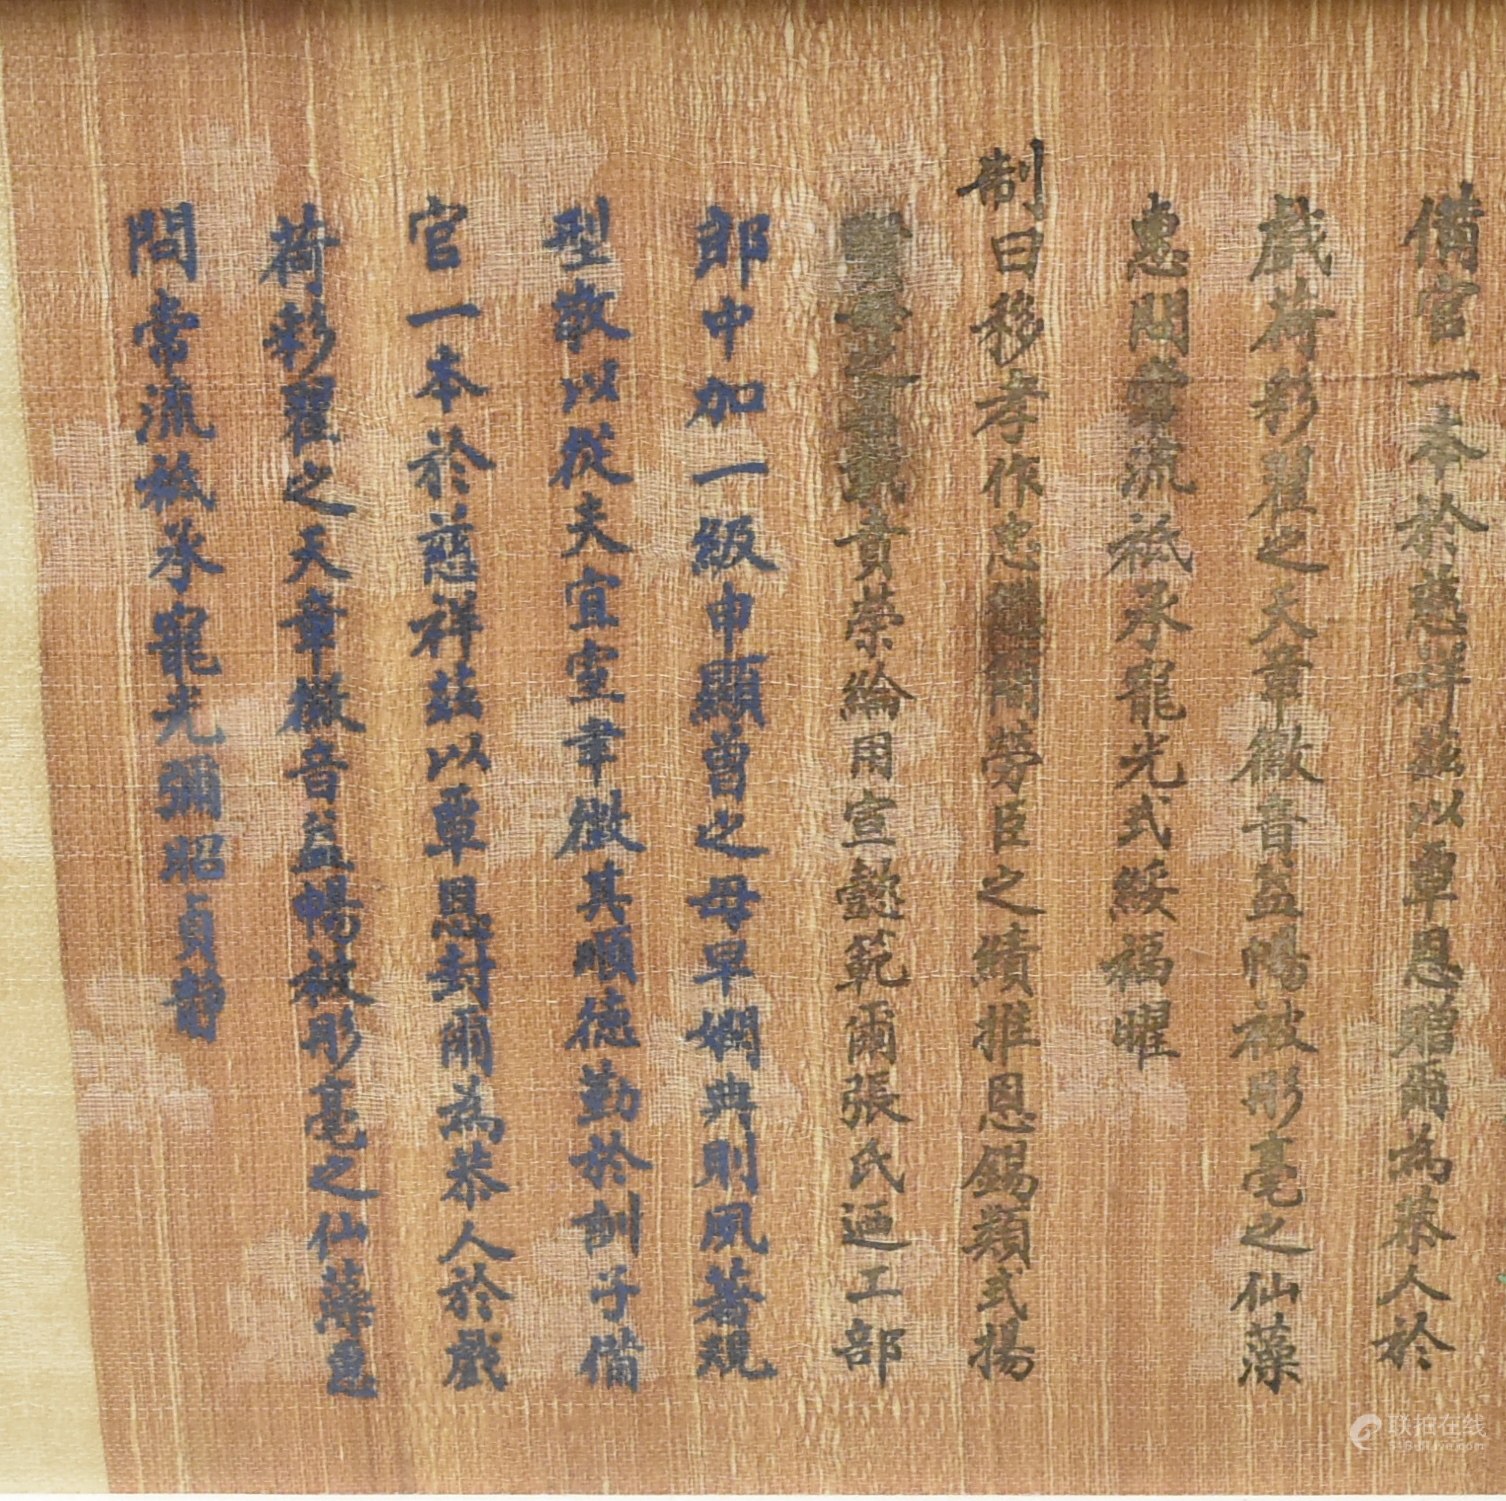 備官一本於慈祥茲以覃恩贈爾為恭人於
戲荷彩翟之天章徽音益暢被彤毫之仙藻
惠問常流祗承寵光式綏福曜
制曰移孝作忠繼爾勞臣之績推恩錫類式揚
貴榮綸用宣懿範爾張氏迺工部
郎中加一級申顯曾之母早嫻典則夙著規
型敬以從夫宜室聿徵其順德勤於訓子備
官一本於慈祥茲以覃恩封爾為恭人於戲
荷彩翟之天章徽音益暢被彤毫之仙藻惠
問常流祗承寵光彌昭貞靜
联拍在线